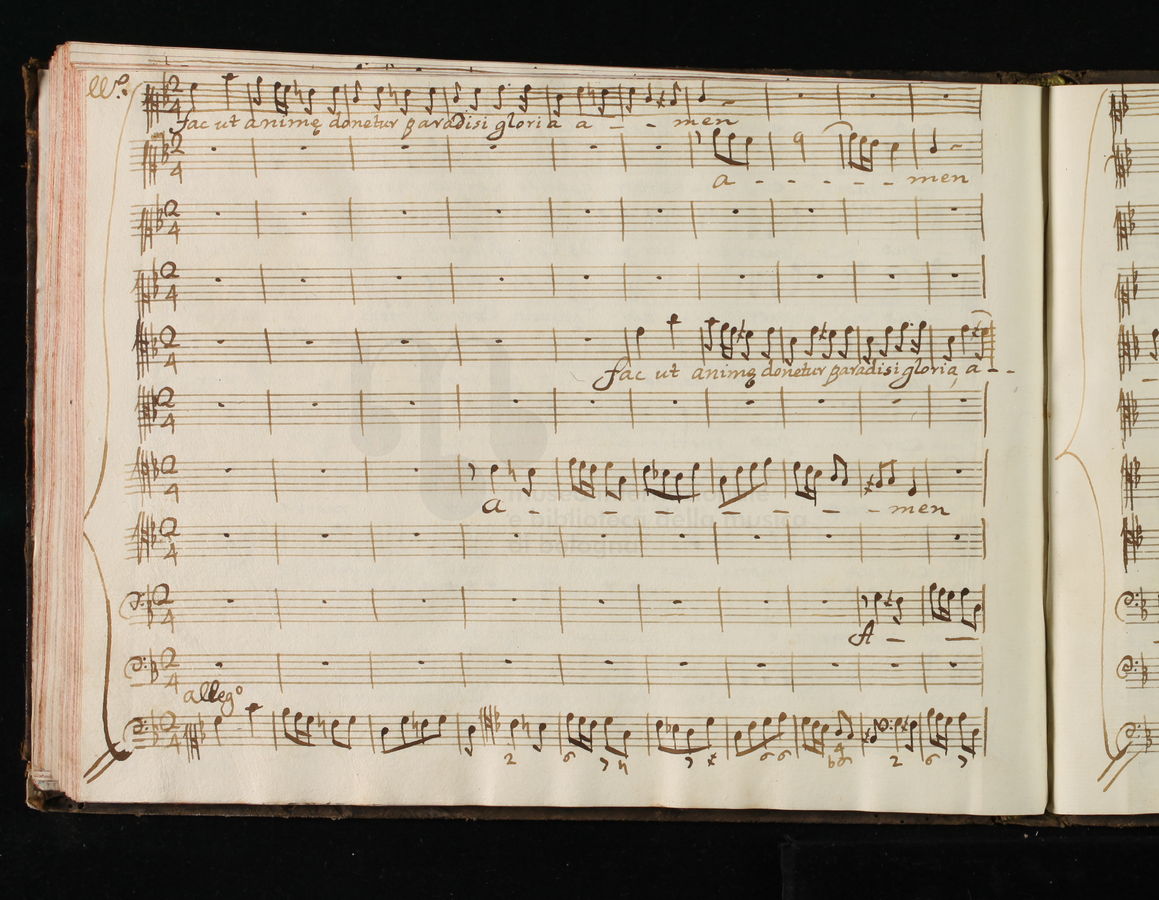 all.º
fac ut animę donetur paradisi gloria a - - men
a - - - - - men
fac ut animę donetur paradisi gloria, a - -
a - - - - - - - men
museo
e biblioteca della musica
di bologna
A - -
alleg.º
2 6 7 ♮ 7 6 6 4 2 6 7
b6